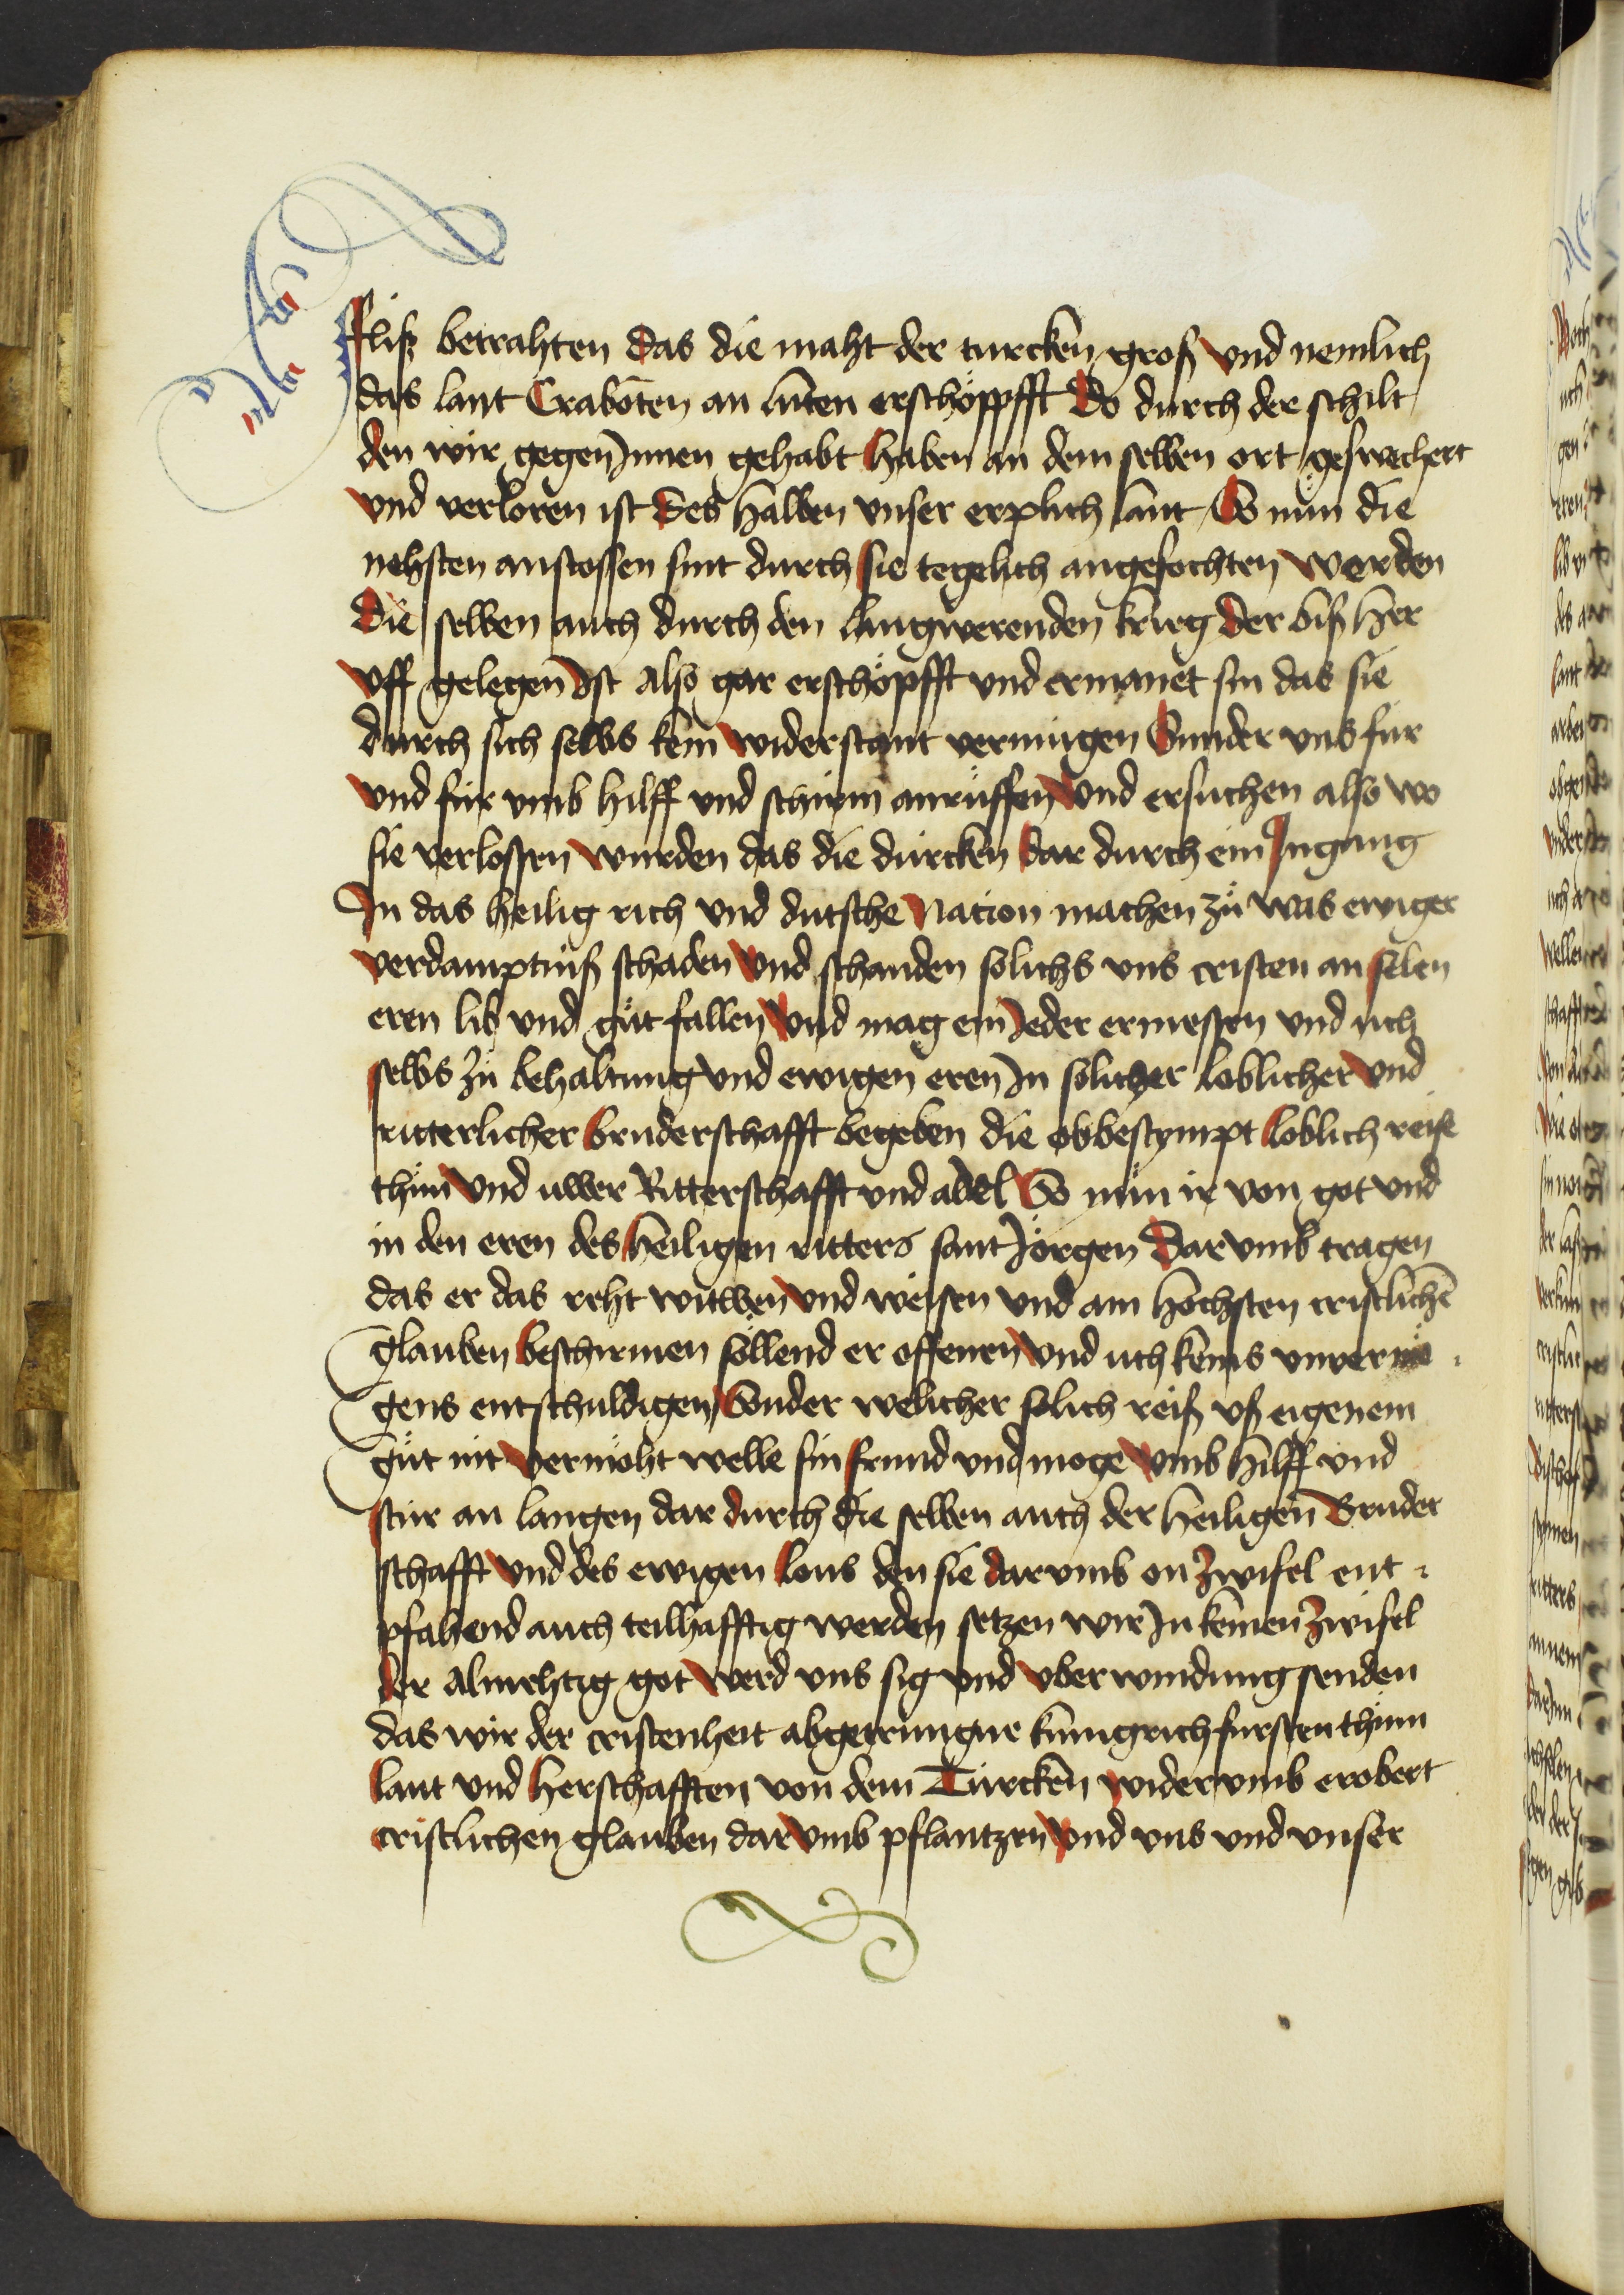 fliß betrahten Das die maht der turcken groß vnd nemlich
das lant Craboten an lüten erschöppfft Do durch der schilt
den wir gegen Innen gehabt haben an dem selben ort geswechert
vnd verloren ist Des halben vnser erplich lant So nün die
nehsten anstossen sint durch sie tegelich angefochten werden
Die selben auch durch den langwerenden krieg der biß her
vff gelegen Ist also gar erschöpfft vnd ermanet sin das sie
durch sich selbs kein widerstant vermügen Sunder vns für
vnd für vmb hilff vnd schirm anrüffen Vnd ersuchen also wo
sie verlossen wurden das die dürcken Dar durch ein Ingang
In das heilig rich vnd dutsche Nation machen zü was ewiger
verdamptniß schaden Vnd schanden solichs vns cristen an selen
eren lib vnd güt fallen Vnd mag ein Ieder ermessen vnd uch
selbs zü behaltung vnd ewigen eren In solicher loblicher vnd
ritterlicher bruderschafft begeben die obbestympt loblich reise
thün Vnd uwer Ritterschafft vnd addel So nün ir von got vnd
in den eren des heiligen ritters sant Jörgen Dar vmb tragen
das er das reht witwen vnd weisen vnd am höchsten cristlichē
glauben beschirmen söllend er offenen Vnd uch keins vnvermö
gens entschuldigen Sonder welicher solich reiß vß eigenem
güt nit vermöht welle sin frund vnd moge vmb hilff vnd
stür an langen dar durch die selben auch der heiligen Bruder
schafft vnd des ewigen lons den sie darvmb on zwifel ent
pfahend auch teilhafftig werden setzen wir In keinen zwifel
der almehtig got werd vns sig vnd vberwindung senden
das wir der cristenheit abgetrungne künigrich fursten thüm
lant vnd herschafften von dem Türcken widervmb erobert
cristlichen glauben darvmb pflantzen vnd vns vnd vnser